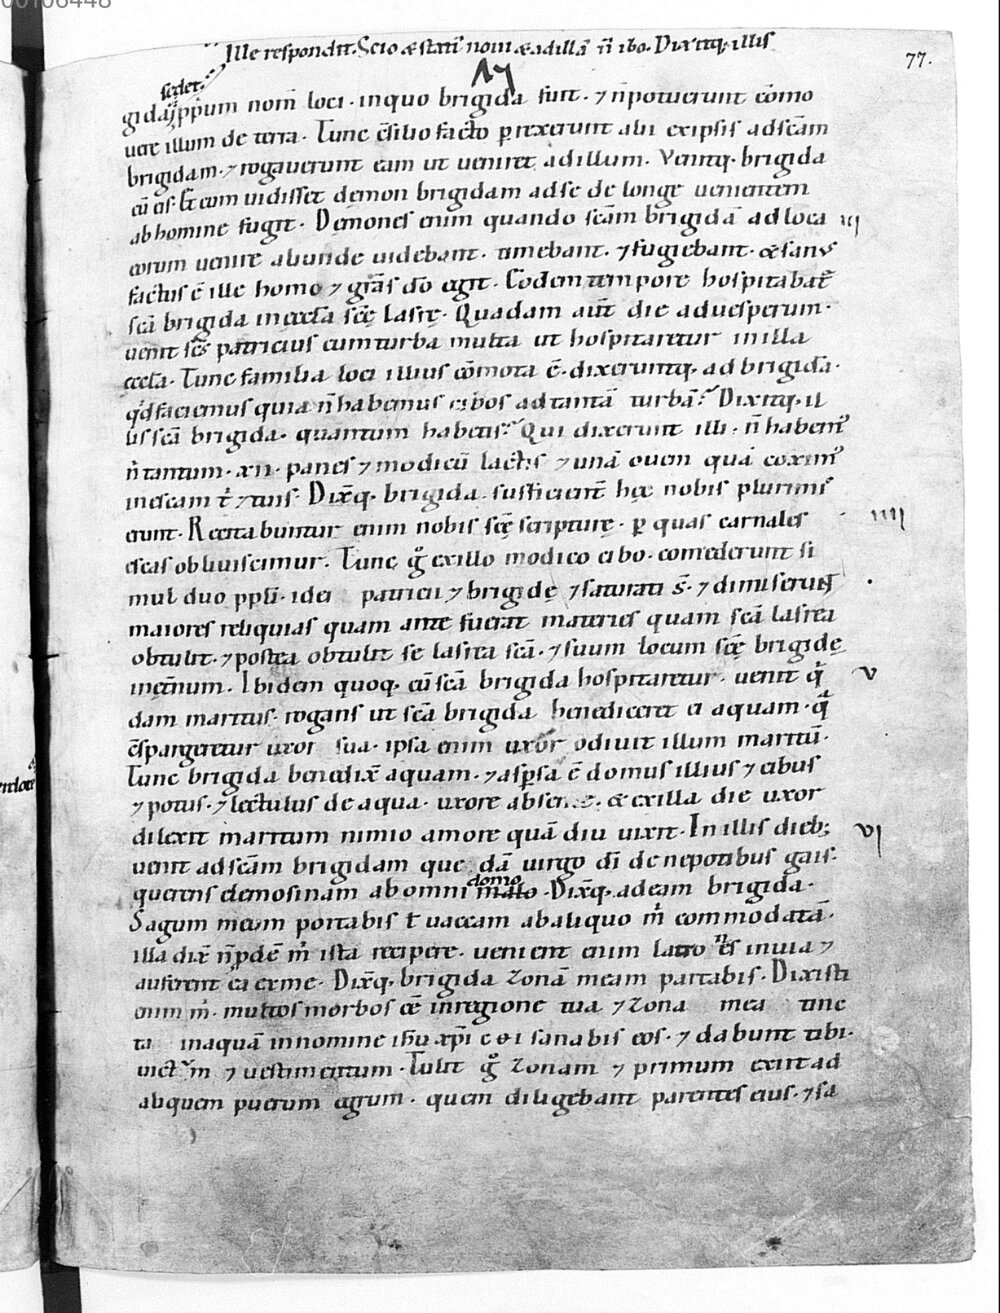 00106448
Ille respondit. Scio & statū noui & ad illā n̄ ibo. Dixitq; illis
77.
sedet.
gida ppriūm nom̄ loci. in quo brigida fuit. ⁊ n̄ potuerunt cōmo
uere illum de terra. Tunc cōsilio facto ꝑrexerunt alii ex ipsis ad scām
brigidam. ⁊ rogauerunt eam ut ueniret ad illum. Venitq; brigida
cū eis. Et cum uidisset demon brigidam ad se de longe uenientem
ab homine fugit. Demones enim quando scām brigidā ad loca
eorum uenire aliunde uidebant. timebant. ⁊ fugiebant. & sanus
factus ē ille homo ⁊ grās dō egit. Eodem tempore hospitabat̄
scā brigida in eccła scē lasrę. Quadam aūt die aduesperum.
uenit scs̄ patricius cum turba multa ut hospitaretur in illa
eccła. Tunc familia loci illius cōmota ē. dixeruntq; ad brigidā.
qd̄ faciemus quia n̄ habemus cibos ad tantā turbā? Dixitq; il
lis scā brigida. quantum habetis? Qui dixerunt illi. n̄ habem᷒
n̄ tantum. xii. panes ⁊ modicū lactis ⁊ unā ouem quā coxim᷒
in escam t̄ ⁊ tuis. Dix̄q; brigida. sufficient hęc nobis plurimis
erunt. Recitabuntur enim nobis scē scripturę. ꝑ quas carnales
escas obliuiscimur. Tunc g̊ ex illo modico cibo. comederunt si
mul duo ppłi. idei patricii ⁊ brigide ⁊ saturati s̄. ⁊ dimiserunt
maiores reliquias quam ante fuerat materies quam scā lasrea
obtulit. ⁊ postea obtulit se lasrea scā. ⁊ suum locum scē brigidę
in et̄num. Ibidem quoq; cū scā brigida hospitaretur. uenit q̇
dam maritus. rogans ut scā brigida benediceret ei aquam. q̄
cōspargeretur uxor sua. ipsa enim uxor odiuit illum maritū.
Tunc brigida benedix̄ aquam. ⁊ aspsa ē domus illius ⁊ cibus
⁊ potus. ⁊ lectulus de aqua. uxore absente. & ex illa die uxor
dilexit maritum nimio amore quā diu uixit. In illis dieb;
uenit ad scām brigidam que dā uirgo dī de nepotibus gais.
domo
querens elemosinam ab omni malo. Dix̄q; ad eam brigida.
Sagum meum portabis ł uaccam ab aliquo m̄ commodatā.
illa dix̄ n̄ pdē m̄ ista recipere. uenient enim latrones in uia ⁊
auferent ea ex me. Dix̄q; brigida zonā meam partabis. Dixisti
enim m̄. multos morbos eē in regione tua ⁊ zona mea tinc
ta in aquā in nomine ihū xpi̅ sanabis eos. ⁊ dabunt tibi.
uictum ⁊ uestimentum. Tulit g̊ zonam ⁊ primum exiit ad
aliquem puerum egrum. quem diligebant parentes eius. ⁊ sa
iii
iiii
v
vi